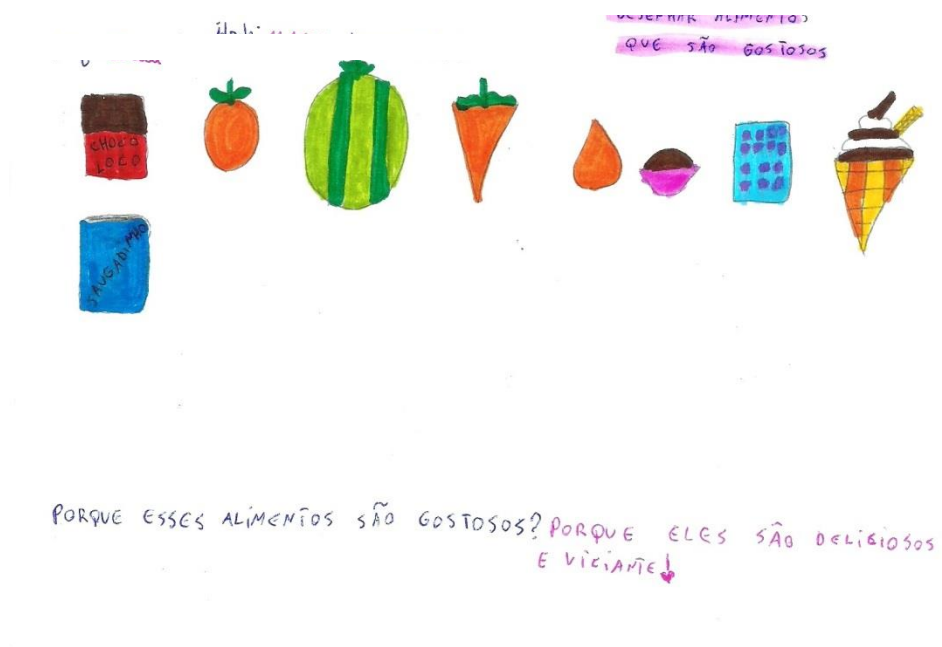 QUE SÃO GOSTOSOS
CHOCO
LOCO
SAUGADINHO
PORQUE ESSES ALIMENTOS SÃO GOSTOSOS? PORQUE ELES SÃO DELIGIOSOS
E VICIANTE!